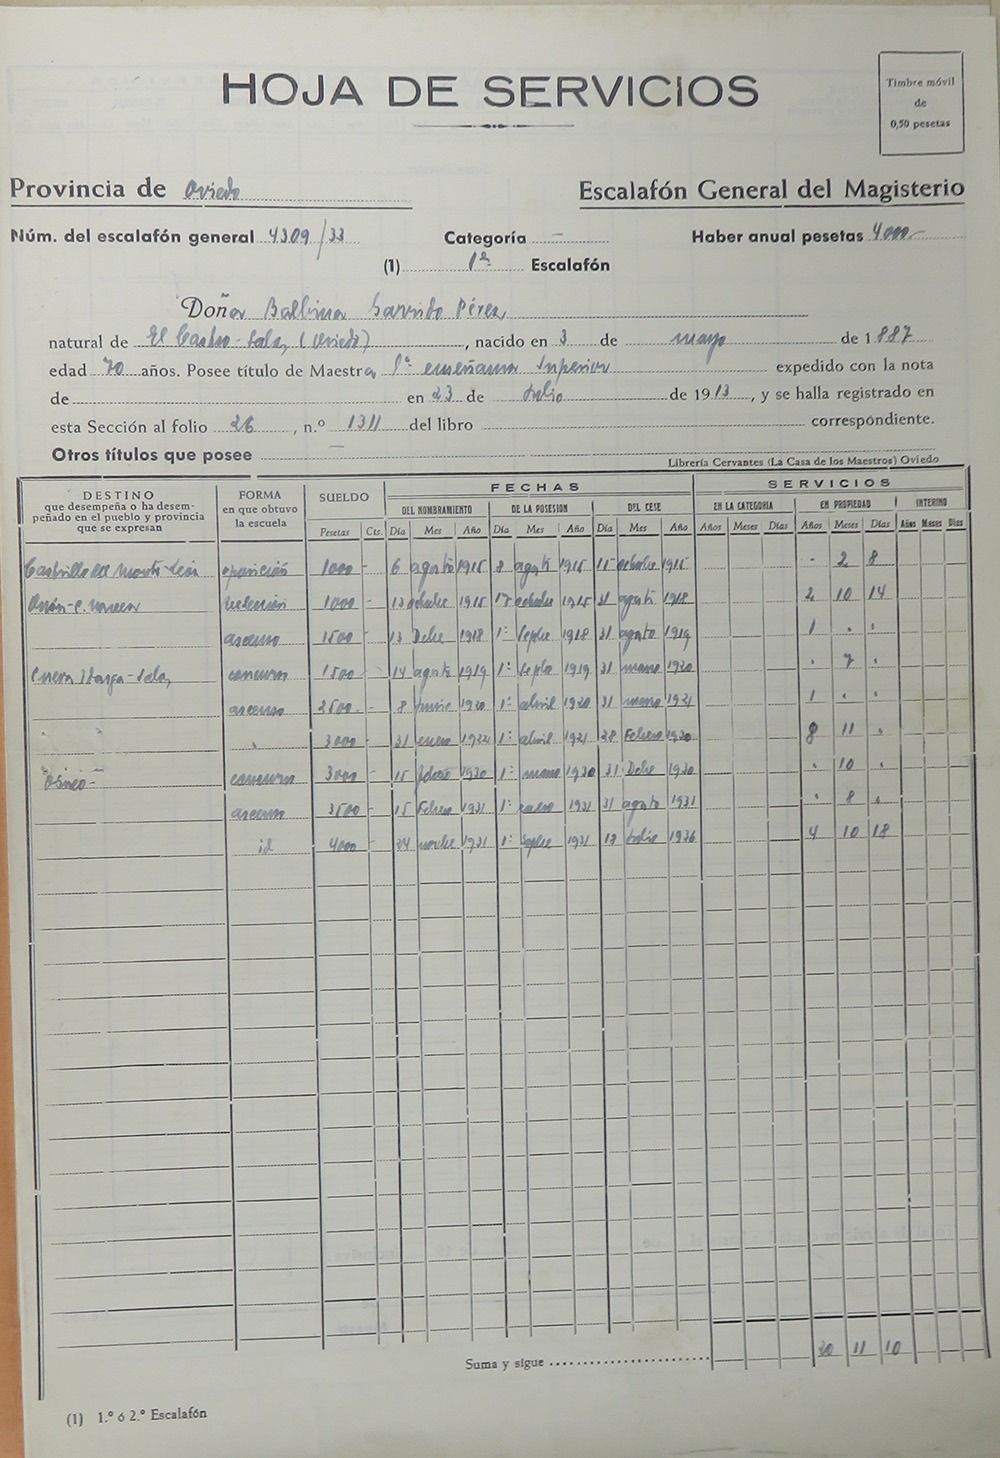 HOJA DE SERVICIOS
Timbre móvil
de
0,50 pesetas
Provincia de Oviedo
Escalafón General del Magisterio
Núm. del escalafón general 4309/33 Categoría — Haber anual pesetas 4000—
(1) 1ª Escalafón
Doña Balbina Garrido Pérez
natural de El Castro-Salas (Oviedo), nacido en 3 de mayo de 1887
edad 70 años. Posee título de Maestra 1ª enseñanza Superior expedido con la nota
de en 23 de Julio de 1913, y se halla registrado en
esta Sección al folio 26, n.º 1311 del libro correspondiente.
Otros títulos que posee —
Librería Cervantes (La Casa de los Maestros) Oviedo
DESTINO
que desempeña o ha desem-
peñado en el pueblo y provincia
que se expresan
FORMA
en que obtuvo
la escuela
SUELDO
FECHAS
SERVICIOS
DEL NOMBRAMIENTO DE LA POSESION DEL CESE EN LA CATEGORIA EN PROPIEDAD INTERINO
Pesetas Cts. Día Mes Año Día Mes Año Día Mes Año Años Meses Días Años Meses Días Años Meses Días
Castrillo del Monte-León oposición 1000 - 6 agosto 1915 8 agosto 1915 15 octubre 1915 - 2 8
1000 - 13 octubre 1915 17 octubre 1915 31 agosto 1918 2 10 14
ascenso 1500 - 13 Dcbre 1918 1º Sepbre 1918 31 agosto 1919 1 . .
Cueva -Salas concurso 1500 - 14 agosto 1919 1º Sepbre 1919 31 marzo 1920 . 7 .
ascenso 2500 - 8 Junio 1920 1º abril 1920 31 marzo 1921 1 . .
" " " 3000 - 31 enero 1922 1º abril 1921 28 Febrero 1930 8 11 .
concurso 3000 - 15 Febrero 1930 1º marzo 1930 31 Dcbre 1930 . 10 .
ascenso 3500 - 15 Febrero 1931 1º enero 1931 31 agosto 1931 . 8 .
id 4000 - 24 novbre 1931 1º Sepbre 1931 18 Julio 1936 4 10 18
Suma y sigue 20 11 10
(1) 1.º ó 2.º Escalafón